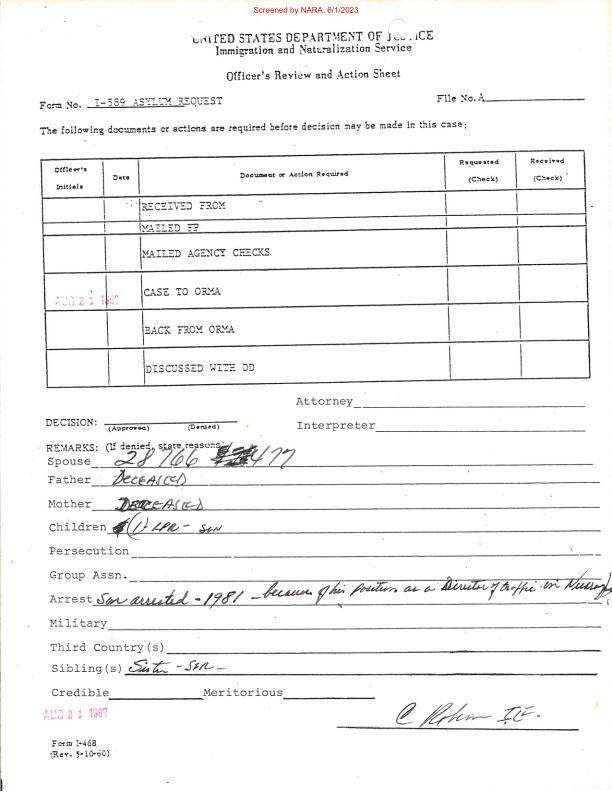 Screened by NARA, 6/1/2023
UNITED STATES DEPARTMENT OF JUSTICE
Immigration and Naturalization Service
Officer's Review and Action Sheet
Form No. I-589 ASYLUM REQUEST File No. A
The following documents or actions are required before decision may be made in this case:
Officer's Initials Date Document or Action Required Requested (Check) Received (Check)
RECEIVED FROM
MAILED FP
MAILED AGENCY CHECKS
AUG 21 1987 CASE TO ORMA
BACK FROM ORMA
DISCUSSED WITH DD
Attorney
DECISION: (Approved) (Denied)
Interpreter
REMARKS: (If denied, state reasons)
Spouse 28 166 477
Father DECEASED
Mother DECEASED
Children (1) LPR - son
Persecution
Group Assn.
Arrest Son arrested - 1981 - because of his position as a Director of traffic in
Military
Third Country(s)
Sibling(s) Sister -
Credible Meritorious
AUG 21 1987
C
Form I-468
(Rev. 5-10-60)